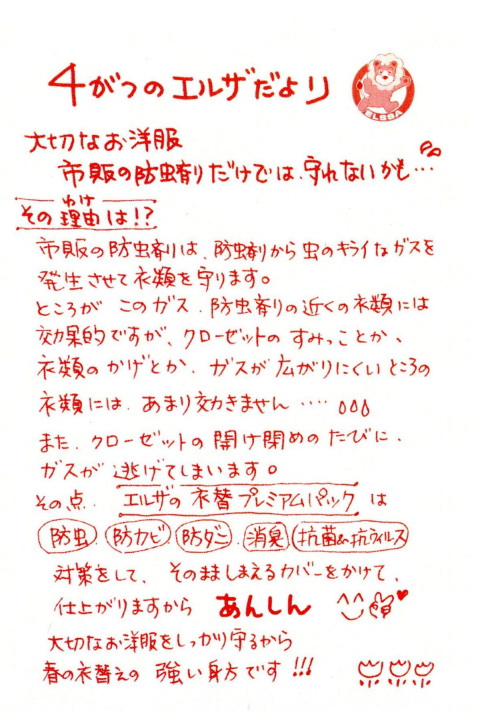 4がつのエルザだより
ELSSA
大切なお洋服
市販の防虫剤だけでは、守れないかも…
わけ
その理由は!?
市販の防虫剤は、防虫剤から虫のキライなガスを
発生させて衣類を守ります。
ところが このガス、防虫剤の近くの衣類には
効果的ですが、クローゼットの すみっことか、
衣類の かげとか、ガスが 広がりにくい ところの
衣類には、あまり効きません ‥‥
また、クローゼットの 開け閉めの たびに、
ガスが 逃げてしまいます。
その点、エルザの 衣替プレミアムパック は
防虫、防カビ、防ダニ、消臭、抗菌&抗ウィルス
対策をして、そのまましまえるカバーをかけて、
仕上がりますから あんしん
大切なお洋服をしっかり守るから
春の衣替えの 強い身方です!!!